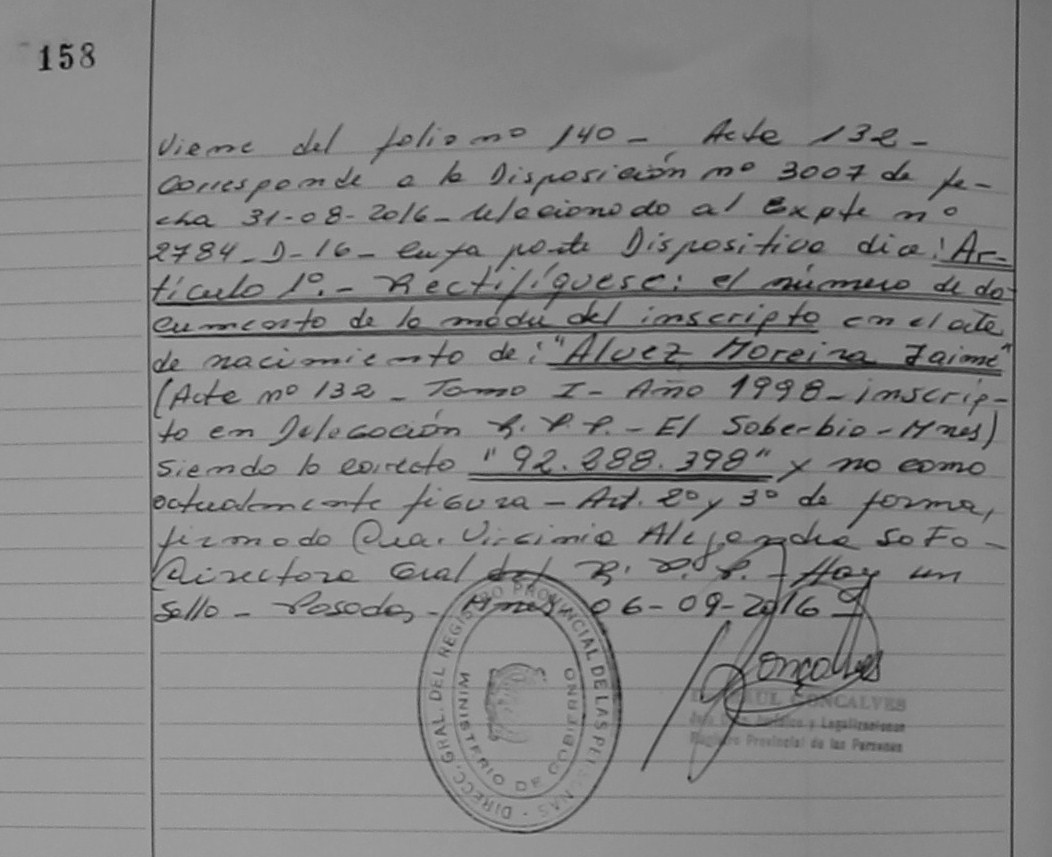 158
Viene del folio nº 140 - Acta 132 -
Corresponde a la Disposición nº 3007 de fe-
cha 31-08-2016 - relacionado al Expte nº
2784-D-16 - cuya parte Dispositiva dice: Ar-
tículo 1º.- Rectifíquese: el número de do-
cumento de la madre del inscripto en el acta
de nacimiento de: "Alvez Moreira Jaime"
(Acta nº 132 - Tomo I - Año 1998 - inscrip-
to en Delegación R.P.P. - El Soberbio - Mnes)
siendo lo correcto "92.288.398" y no como
actualmente figura - Art. 2º y 3º de forma,
firmado Dra. Virginia Alejandra Soto -
Directora Gral del R.P.P. - Hay un
sello - Posadas - Mnes 06-09-2016
DIRECC. GRAL. DEL REGISTRO PROVINCIAL DE LAS PERSONAS
MINISTERIO DE GOBIERNO
Gonçalves
RAUL GONCALVES
Jurídico y Legalizaciones
Registro Provincial de las Personas